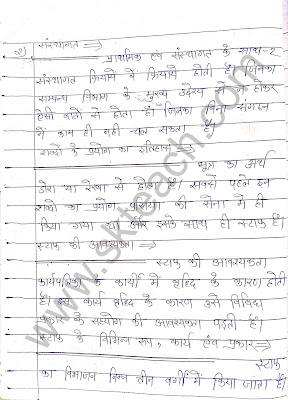 २) संस्थागत ⇒
प्राथमिक एवं संस्थागत के साथ-२
संस्थागत क्रियायें वे क्रियायें होती है जिनका
सामान्य विभाग के मुख्य उद्देश्य से न होकर
ऐसी बातों से होता है जिनका बिना संगठन
में काम ही नहीं चल सकता है
शब्दों के प्रयोग का इतिहास ⇒
सूत्र का अर्थ
डोरा या रेखा से होता है। सबसे पहले इन
शब्दों का प्रयोग एशिया की सेना में ही
किया गया था और इसके साथ ही स्टाफ है।
स्टाफ की आवश्यकता ⇒
स्टाफ की आवश्यकता
कार्यपालिका के कार्यों में वृद्धि के कारण होती
है। इस कार्य वृद्धि के कारण उसे विविध
प्रकार के सहयोग की आवश्यकता पड़ती है।
स्टाफ के विभिन्न रूप, कार्य एंव प्रकार ⇒
स्टाफ
का विभाजन निम्न तीन वर्गों में किया जाता है।
www.skteach.com